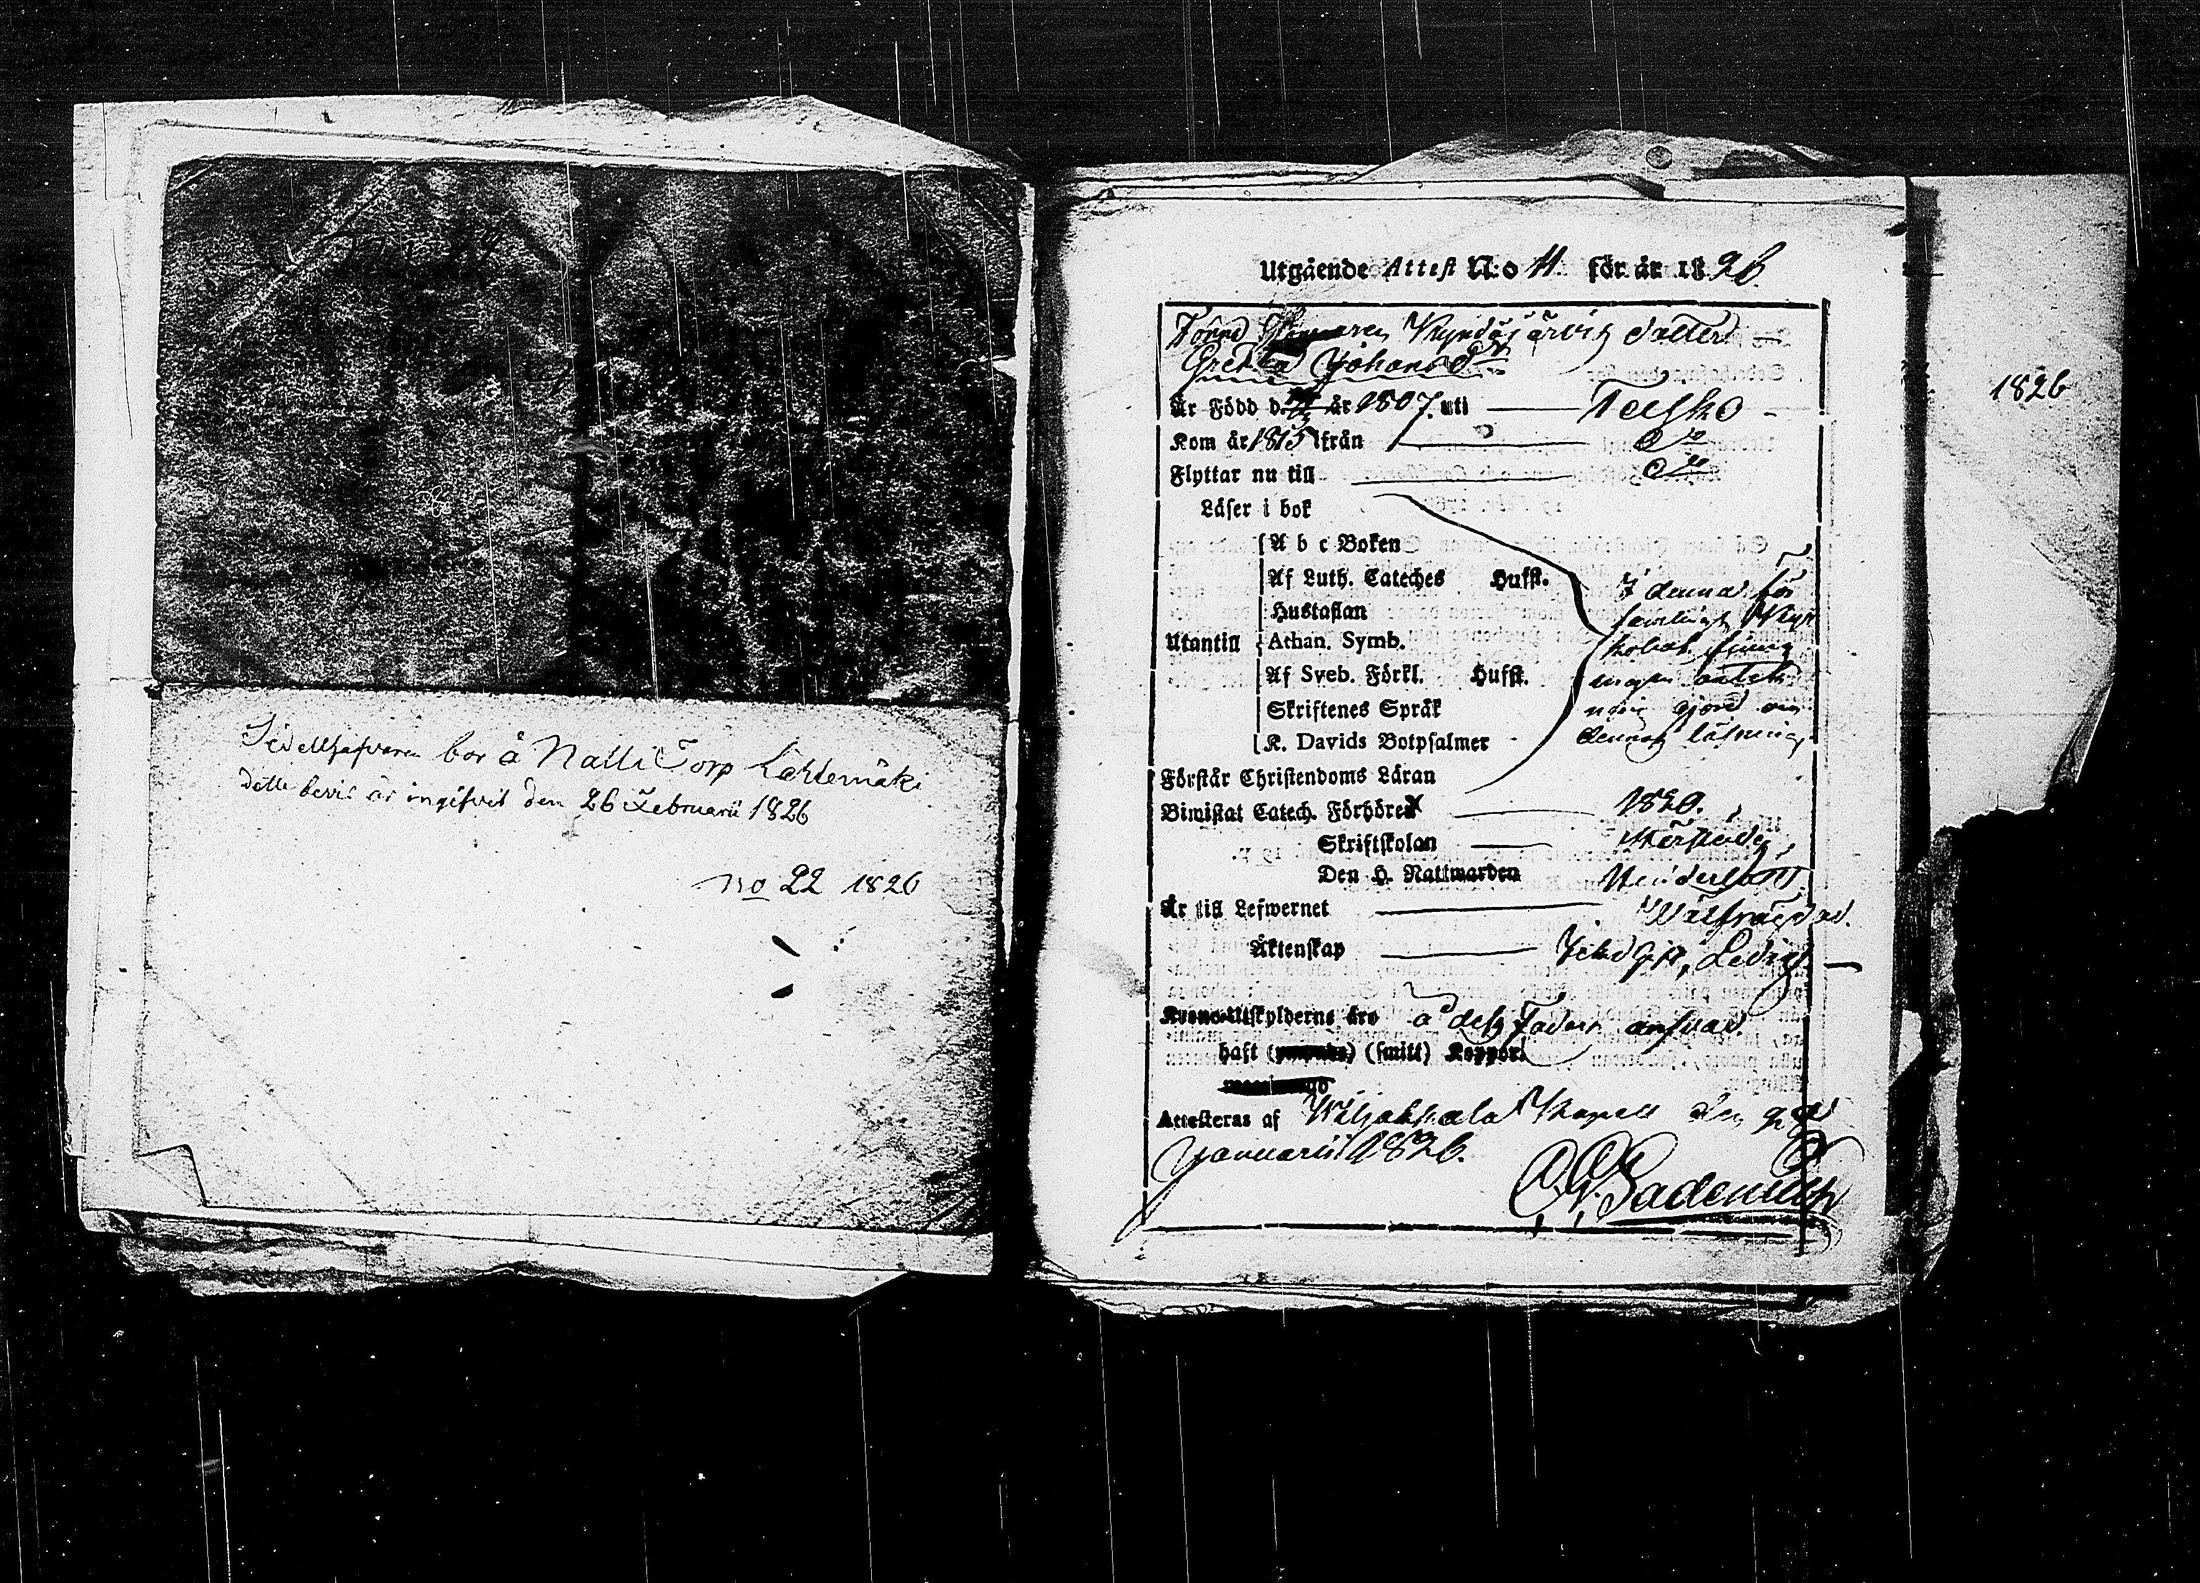 Sedellhafvaren bor å Nalli Torp Lahdemäki
dette bevis är ingifvit den 26 Februarii 1826
no 22 1826
Utgående Attest N:o 11 för år 1826
Dotter
Greta Johans Dr
Är Född d. år 1807. uti Teisko
Kom år 1815 ifrån Do
Flyttar nu till Do
Läser i bok
A b c Boken
Af Luth. Cateches Hufst.
Hustaflan
Utantill Athan. Symb.
Af Sveb. Förkl. Hufst.
Skriftenes Språk
K. Davids Botpsalmer
I denna för
samlings Kyr
kobok finnes
ingen anteck
ning gjord om
dennas läsning
Förstår Christendoms Läran
Biwistat Catech. Förhören 1820.
Skriftskolan
Den H. Nattwarden
Är till Lefwernet Wälfräjdad.
Äktenskap Ledig
Krono Utskylderna äro å dess Faders ansvar.
haft (smitt) Koppor
Attesteras af Wiljakkala Kapell den
Januarii 1826.
1826